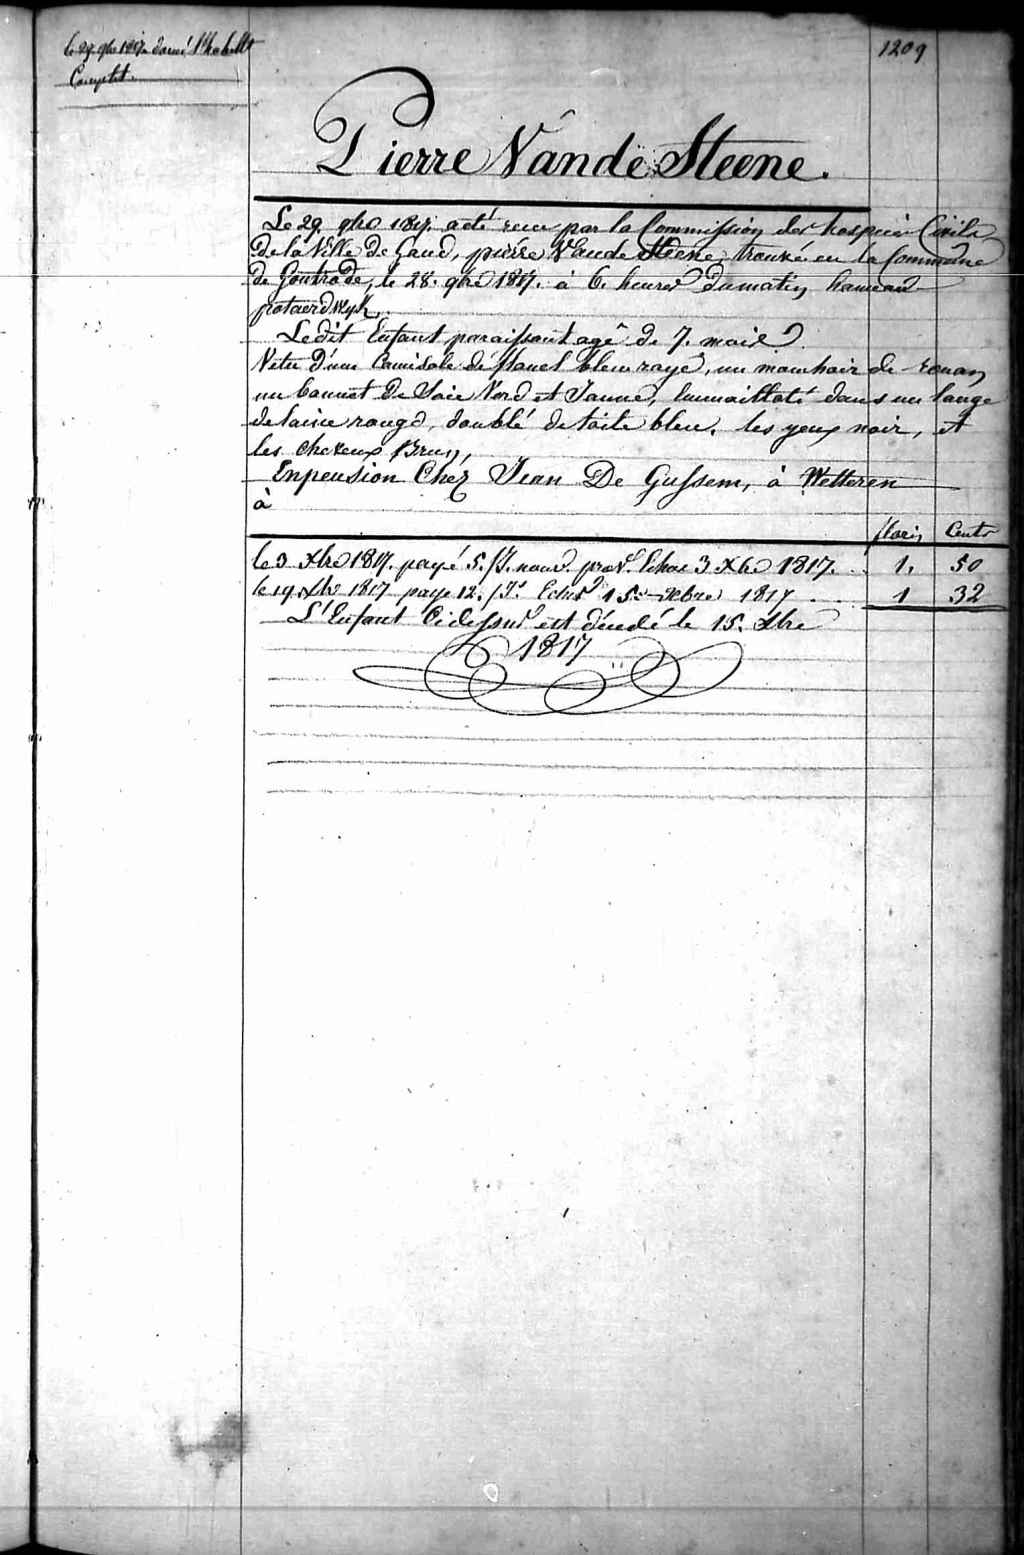 le 29. 9bre 1817. donné l'habillt
Complet.
1209
Pierre Vande Steene.
Le 29. 9bre 1817. a eté recu par la Commission des hospices Civils
de la Ville de Gand, piérre Vande Steene, trouvé en la Commune
de Gontrode, le 28. 9bre 1817. à 6. heures du matin hameau
Ledit Enfant paraissant agé de 7. mois
Vetu d'une Camisole de flanel bleu rayé, un mouchoir de rouan
un bonnet de Soie Nord et Jaune, Emmailloté dans un lange
de laine rouge, doublé de toile bleu, les yeux noir, et
les cheveux Brun,
Enpension Chez Jean De Gussem, à Wetteren
à
florin Cents
le 3 Xbre 1817. payé 5. /J. nour. prov. Echue 3 Xbre 1817. . 1. 50
le 19. Xbre 1817 payé 12. /Js Echus 15. Xbre 1817 . . . 1 32
L'Enfant Cidessus est décedé le 15. Xbre
1817